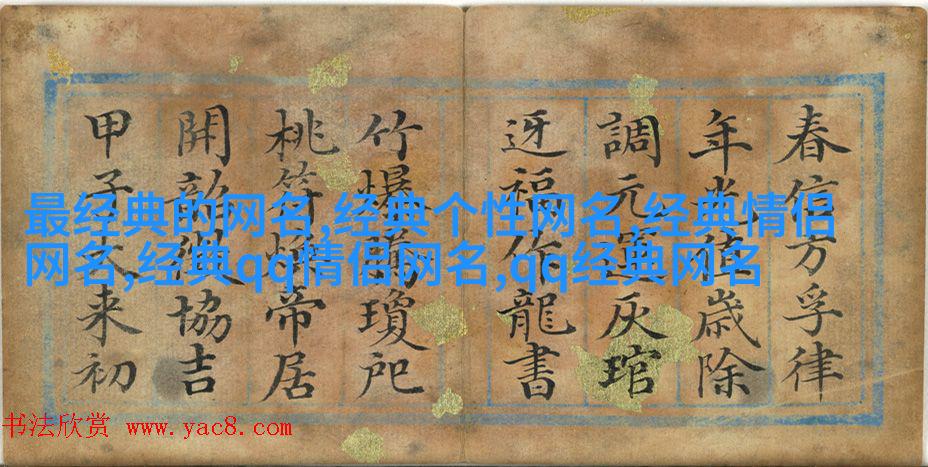 春信方孚律
年光值歲除
調元灰琯
迓福作龍書
竹爆瓊戺
桃符帝居
開韶協吉
甲子来初
最经典的网名,经典个性网名,经典情侣
网名,经典qq情侣网名,qq经典网名
书法欣赏 www.yac8.com